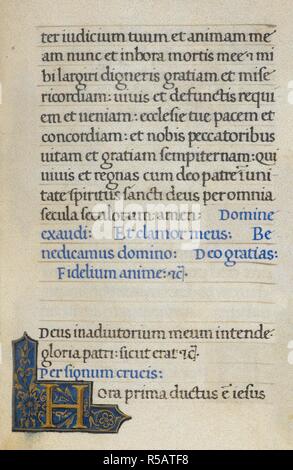 ter iudicium tuum et animam me
am nunc et in hora mortis mee⁊ mi
bi largiri digneris gratiam et mise
ricordiam: uiuis et defunctis requi
em et ueniam: ecclesie tue pacem et
concordiam: et nobis peccatoribus
uitam et gratiam sempiternam: qui
uiuis et regnas cum deo patre ī uni
tate spiritus sancti deus per omnia
secula seculorum: amen: Domine
exaudi: Et clamor meus: Be
nedicamus domino: Deo gratias:
Fidelium anime: ⁊c̄.
Deus in adiutorium meum intende·
gloria patri: sicut erat ⁊c̄.
Per signum crucis:
Hora prima ductus ē iesus
alamy
R5ATF8